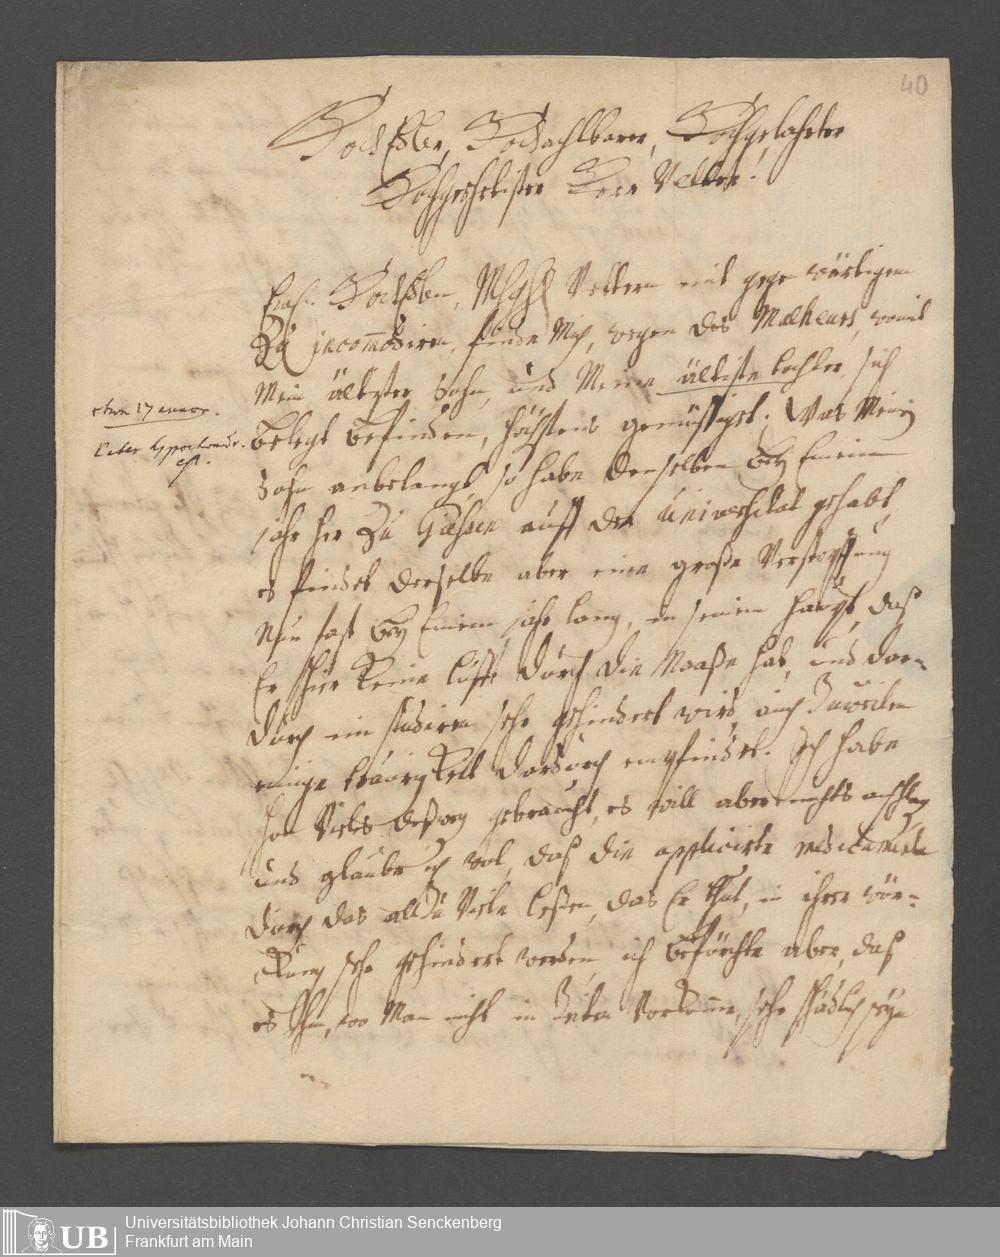 40
HochEdler, Hochachtbarer, Hochgelahrter
Hochgeehrtister Herr Vetter!
Ew. HochEdlen, MhgH Vettern mit gegenwärtigem
Zu incom̄odiren, finde Mich, wegen des Malheurs, womit
Mein ältester Sohn, und Meine ältiste tochter, sich
belegt befinden, höchstens genüssiget. Was Meinen
Sohn anbelangt, so habe denselben bey Einem
jahr her Zu Giessen auff der Universitat gehabt,
es findet derselbe aber eine große Verstopffung
Nun fast bey Einem jahr lang, in seinem haupt, daß
Er schier Keine lufft durch die Naaße hat, und dar=
durch im studiren sehr gehindert wird, auch Zuweilen
einige traurigKeit dardurch empfindet. Ich habe
schon Vieles deßweg gebraucht, es will aber nichts anschlagen
und glaube ich wol, daß die applicirte medicamenta
durch das allzu Viele leßen, das Er thut, in ihrer wür=
Kung sehr gehindert werden, ich beförchte aber, daß
es Ihm, wo Man nicht in Zeiten Vorkom̄e, sehr schädlich seyn
etwa 17 annor.
Pater hypochondr.
est.
UB
Universitätsbibliothek Johann Christian Senckenberg
Frankfurt am Main